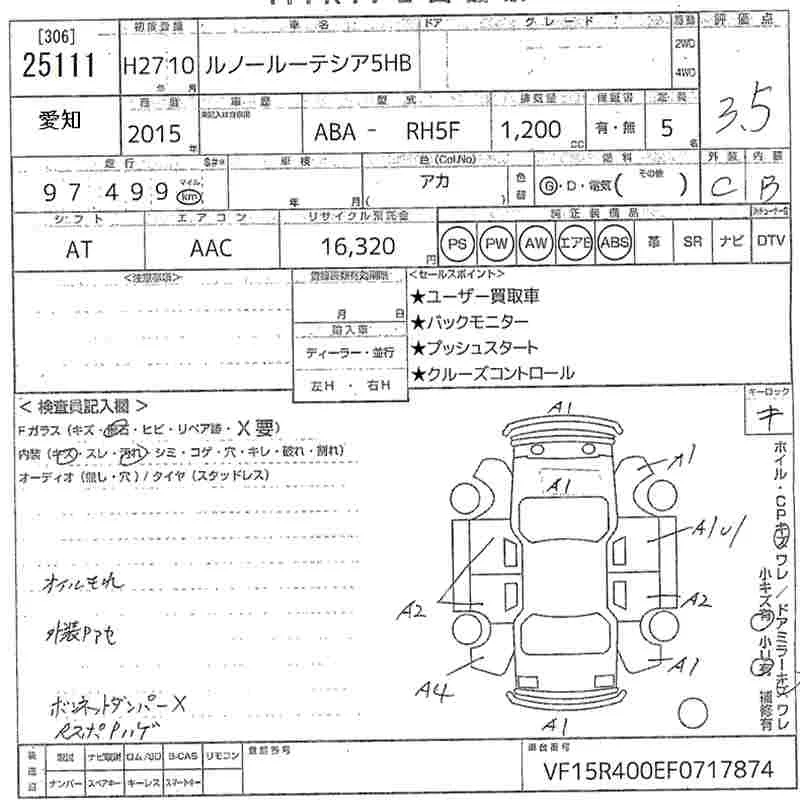 [306] 初度登録 車名 ドア グレード 駆動 評価点
25111 H27 10 ルノールーテシア5HB 2WD
年 月 4WD
3.5
愛知 商歴 車歴 型式 排気量 保証書 定員
2015 年 ABA - RH5F 1,200 cc 有・無 5 名
走行 車検 色(Col.No) 燃料 外装 内装
97499 マイル km 年 月 アカ ( ) 色替 Ⓖ・D・電気( その他 ) C B
シフト エアコン リサイクル預託金 純正装備品
AT AAC 16,320 円 PS PW AW エアB ABS 革 SR ナビ DTV
<注意事項> <セールスポイント>
月 日 ★ユーザー買取車
輸入車 ★バックモニター
ディーラー・並行 ★プッシュスタート
左H ・ 右H ★クルーズコントロール
< 検査員記入欄 > キーロック
Fガラス (キズ・飛石・ヒビ・リペア跡・X要) キ
内装 (キズ・スレ・汚れ・シミ・コゲ・穴・キレ・破れ・割れ)
オーディオ (無し・穴) / タイヤ (スタッドレス)
A1
A1
A1
A1U1
A2
A2
A4
A1
A1
ホイル・CPキズワレ / ドアミラーキズワレ
小キズ有 小U有 補修有
オイルモレ
外装Pアセ
ボンネットダンパーX
取説 ナビ取説 ロム/SD B-CAS リモコン 登録番号 車台番号
ナンバー スペアキー キーレス スマートキー VF15R400EF0717874